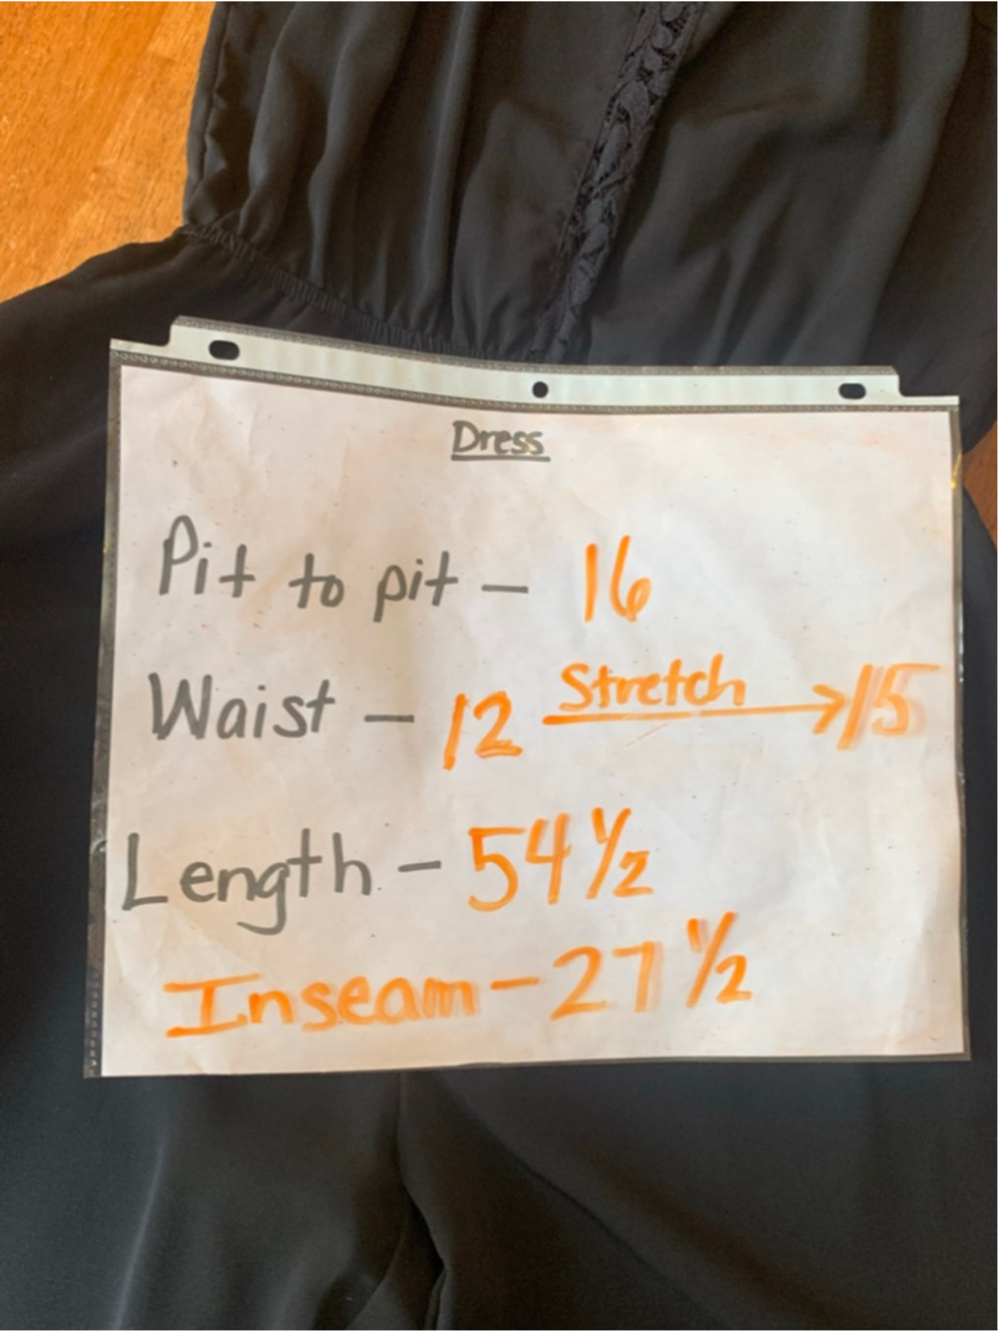 Dress
Pit to pit – 16
Waist – 12 Stretch → 15
Length – 54 1/2
Inseam – 27 1/2